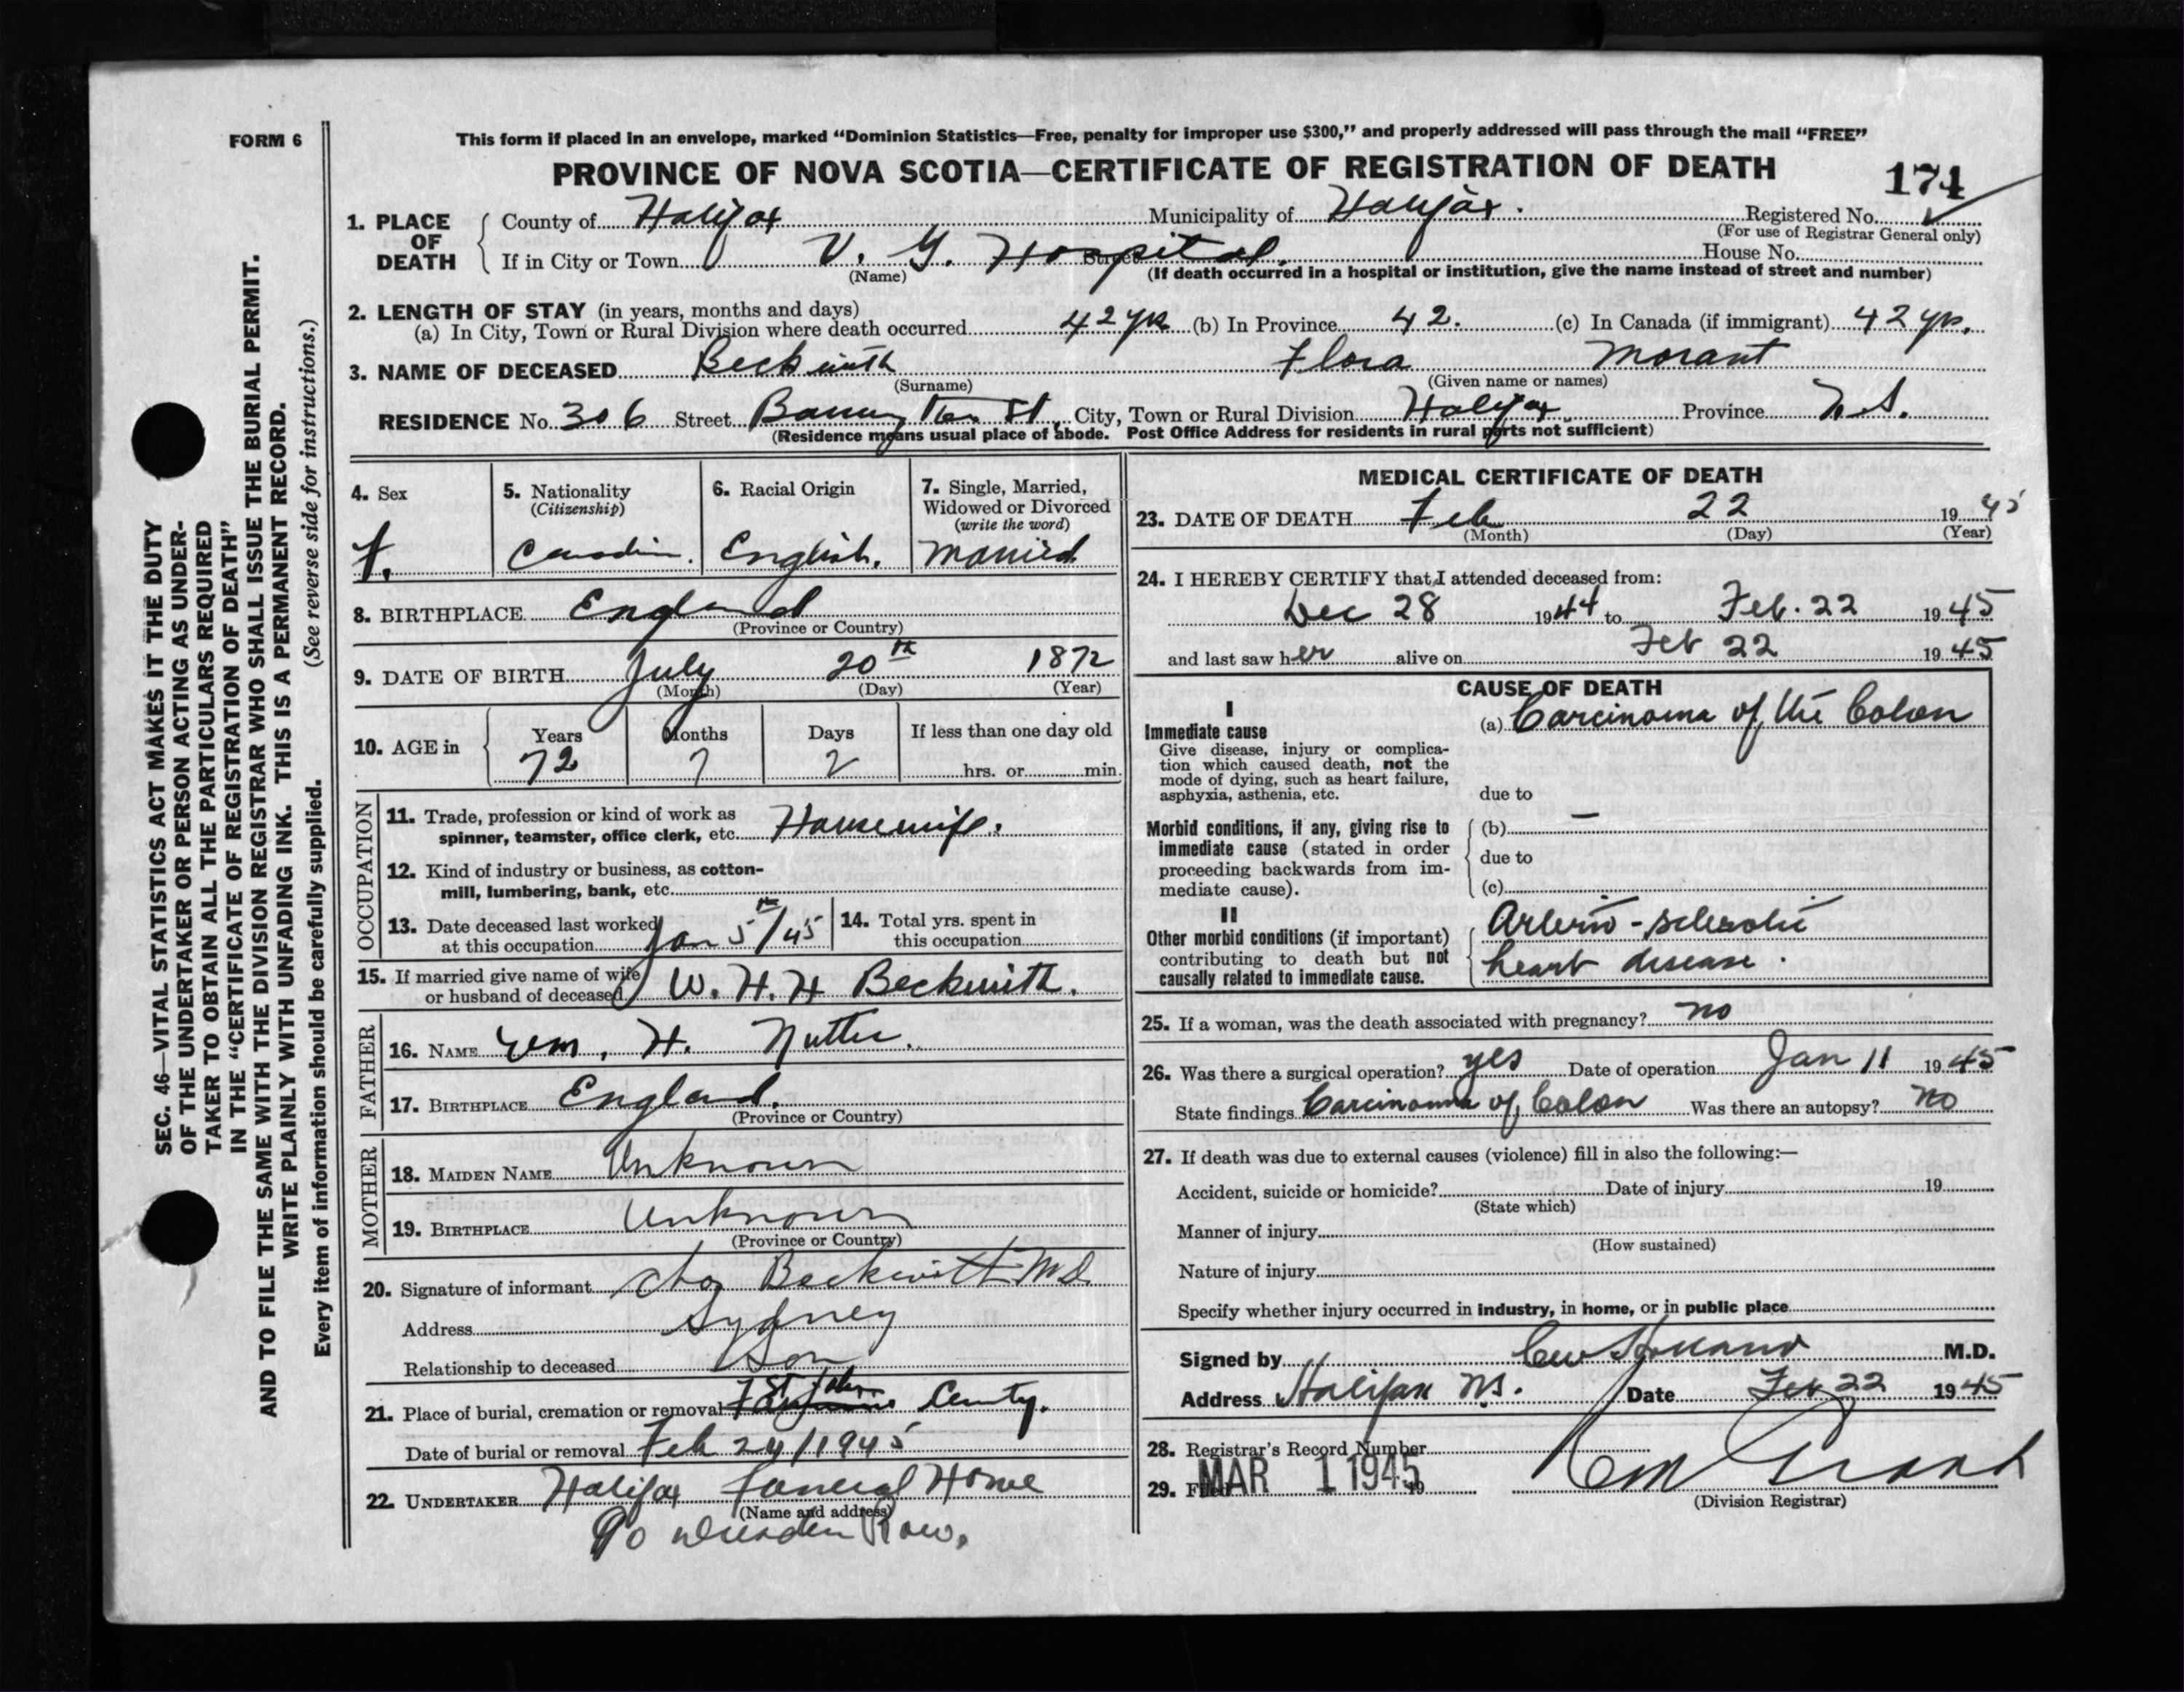 FORM 6
This form if placed in an envelope, marked “Dominion Statistics—Free, penalty for improper use $300,” and properly addressed will pass through the mail “FREE”
PROVINCE OF NOVA SCOTIA—CERTIFICATE OF REGISTRATION OF DEATH
174
1. PLACE OF DEATH County of Halifax Municipality of Halifax. Registered No.
(For use of Registrar General only)
If in City or Town V. G. Hospital. Street House No.
(Name) (If death occurred in a hospital or institution, give the name instead of street and number)
2. LENGTH OF STAY (in years, months and days)
(a) In City, Town or Rural Division where death occurred 42 yrs (b) In Province 42. (c) In Canada (if immigrant) 42 yrs.
3. NAME OF DECEASED Beckwith Flora Morant
(Surname) (Given name or names)
RESIDENCE No. 306 Street Barrington St. City, Town or Rural Division Halifax Province N.S.
(Residence means usual place of abode. Post Office Address for residents in rural parts not sufficient)
4. Sex 5. Nationality (Citizenship) 6. Racial Origin 7. Single, Married, Widowed or Divorced (write the word)
f. Canadian. English. Married
8. BIRTHPLACE England
(Province or Country)
9. DATE OF BIRTH July 20th 1872
(Month) (Day) (Year)
10. AGE in Years Months Days If less than one day old
72 7 2 hrs. or min.
OCCUPATION
11. Trade, profession or kind of work as
spinner, teamster, office clerk, etc. Housewife.
12. Kind of industry or business, as cotton-
mill, lumbering, bank, etc.
13. Date deceased last worked at this occupation Jan 5th/45 14. Total yrs. spent in this occupation
15. If married give name of wife
or husband of deceased W. H. H Beckwith.
FATHER
16. NAME Wm. H. Nutter.
17. BIRTHPLACE England.
(Province or Country)
MOTHER
18. MAIDEN NAME Unknown
19. BIRTHPLACE Unknown
(Province or Country)
20. Signature of informant Chas Beckwith MD
Address Sydney
Relationship to deceased Son
21. Place of burial, cremation or removal St John Cemty.
Date of burial or removal Feb 24/1945
22. UNDERTAKER Halifax Funeral Home
(Name and address)
90 Dresden Row.
MEDICAL CERTIFICATE OF DEATH
23. DATE OF DEATH Feb 22 1945
(Month) (Day) (Year)
24. I HEREBY CERTIFY that I attended deceased from:
Dec 28 1944 to Feb. 22 1945
and last saw her alive on Feb 22 1945
CAUSE OF DEATH
I
Immediate cause (a) Carcinoma of the Colon
Give disease, injury or complica-
tion which caused death, not the
mode of dying, such as heart failure,
asphyxia, asthenia, etc. due to
Morbid conditions, if any, giving rise to (b) —
immediate cause (stated in order
proceeding backwards from im- due to
mediate cause). (c)
II
Other morbid conditions (if important) Arterio-sclerotic
contributing to death but not heart disease.
causally related to immediate cause.
25. If a woman, was the death associated with pregnancy? no
26. Was there a surgical operation? yes Date of operation Jan 11 1945
State findings Carcinoma of Colon Was there an autopsy? no
27. If death was due to external causes (violence) fill in also the following:—
Accident, suicide or homicide? Date of injury 19
(State which)
Manner of injury
(How sustained)
Nature of injury
Specify whether injury occurred in industry, in home, or in public place
Signed by CW Holland M.D.
Address Halifax NS. Date Feb 22 1945
28. Registrar's Record Number
29. MAR 1 1945
(Division Registrar)
SEC. 46—VITAL STATISTICS ACT MAKES IT THE DUTY
OF THE UNDERTAKER OR PERSON ACTING AS UNDER-
TAKER TO OBTAIN ALL THE PARTICULARS REQUIRED
IN THE “CERTIFICATE OF REGISTRATION OF DEATH”
AND TO FILE THE SAME WITH THE DIVISION REGISTRAR WHO SHALL ISSUE THE BURIAL PERMIT.
WRITE PLAINLY WITH UNFADING INK. THIS IS A PERMANENT RECORD.
Every item of information should be carefully supplied. (See reverse side for instructions.)